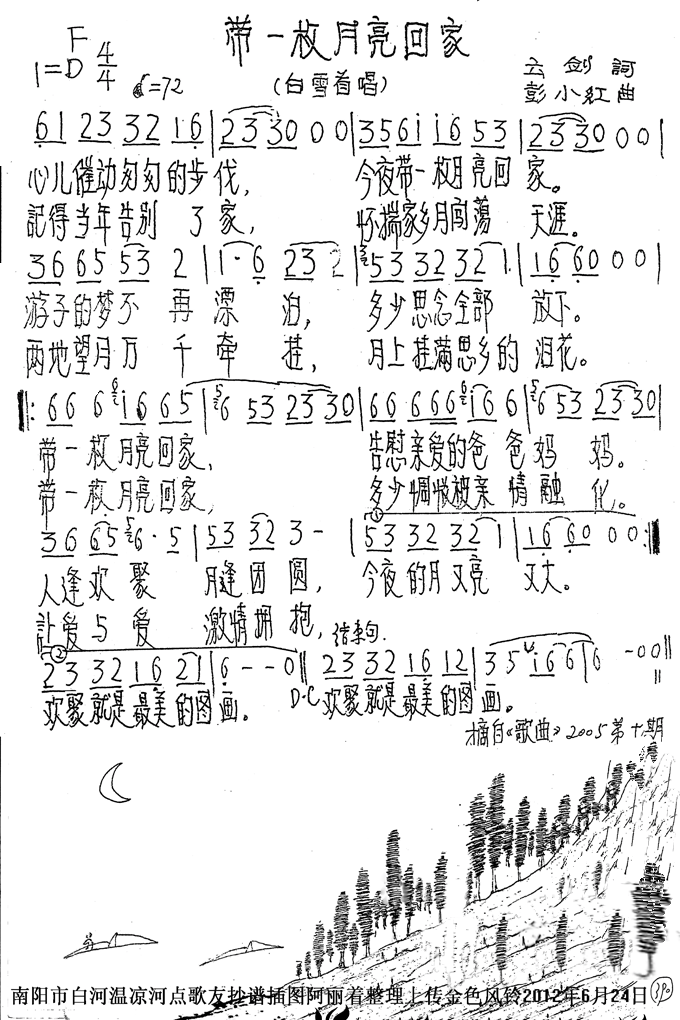 带一枚月亮回家
F
1=D 4/4 ♩=72
(白雪首唱)
云剑詞
彭小红曲
61 23 32 16 | 23 30 0 0 | 3561 16 53 | 23 30 0 0 |
心儿催动匆匆的步伐, 今夜带一枚月亮回家。
記得当年告别了家, 怀揣家乡月闯荡天涯。
36 65 53 2 | 1· 6 23 2 | 53 32 32 1 | 16 60 0 0 |
游子的梦不再漂泊, 多少思念全部放下。
两地望月万千牵挂, 月上挂满思乡的泪花。
‖: 66 6 i6 65 | 6 53 23 30 | 66 666 i6 6 | 6 53 23 30 |
带一枚月亮回家, 告慰亲爱的爸爸妈妈。
带一枚月亮回家, 多少惆怅被亲情融化。
36 65 6· 5 | 53 32 3 - | 53 32 32 1 | 16 60 0 0 :‖
人逢欢聚月逢团圆, 今夜的月又亮又大。
让爱与爱激情拥抱,
结束句.
23 32 16 21 | 6 - - 0 ‖ D.C 23 32 16 12 | 3 5 i6 6 | 6 - 0 0 ‖
欢聚就是最美的图画。 欢聚就是最美的图画。
摘自《歌曲》2005第十期
南阳市白河温凉河点歌友抄谱插图阿丽着整理上传金色风铃2012年6月24日
390